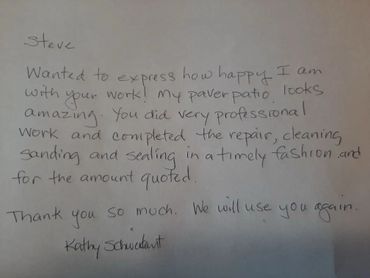 Steve
Wanted to express how happy I am
with your work! My paver patio looks
amazing. You did very professional
work and completed the repair, cleaning,
sanding and sealing in a timely fashion and
for the amount quoted.
Thank you so much. We will use you again.
Kathy